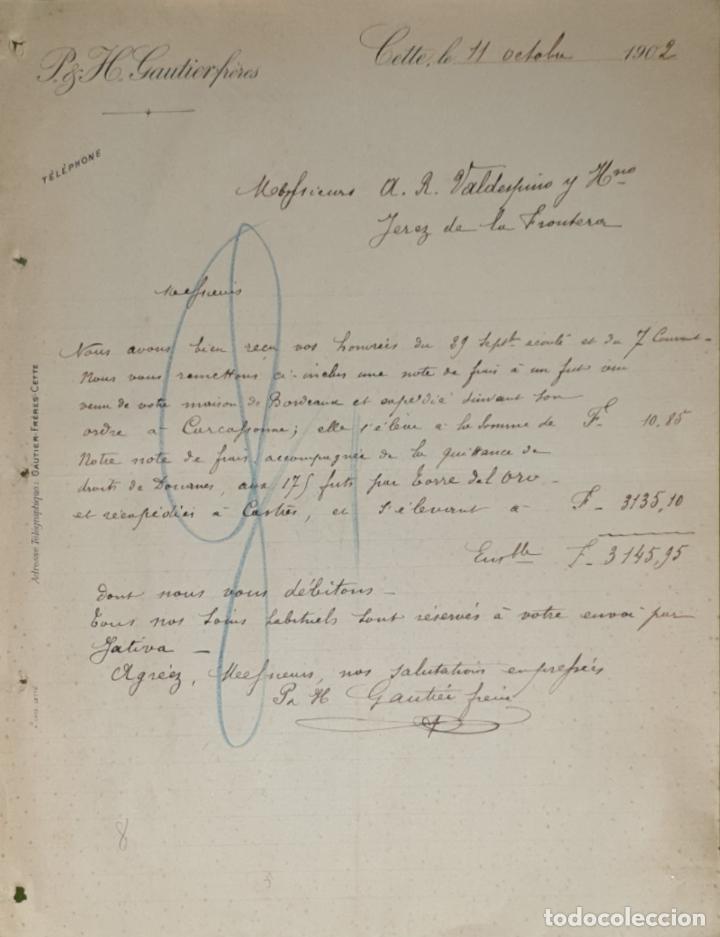 P. & H. Gautier frères
Cette, le 11 octobre 1902
TÉLÉPHONE
Messieurs A. R. Valdespino y Hno
Jerez de la Frontera
Messieurs
Nous avons bien reçu vos honorées du 29 Sept. écoulé et du 7 Courant.
Nous vous remettons ci-inclus une note de frais à un fut vin
venu de votre maison de Bordeaux et expédié suivant son
ordre à Carcassonne; elle s'élève à la somme de F. 10,85
Notre note de frais accompagnée de la quittance de
droits de Douanes, aux 175 futs par Torre del Oro -
et réexpédiés à Castres, et s'élevant à F- 3135,10
Ensble F- 3145,95
dont nous vous débitons -
Tous nos soins habituels sont réservés à votre envoi par
Jativa -
Agréez, Messieurs, nos salutations empressées
P & H Gautier frères
Adresse Télégraphique: GAUTIER-FRÈRES-CETTE
8
todocoleccion